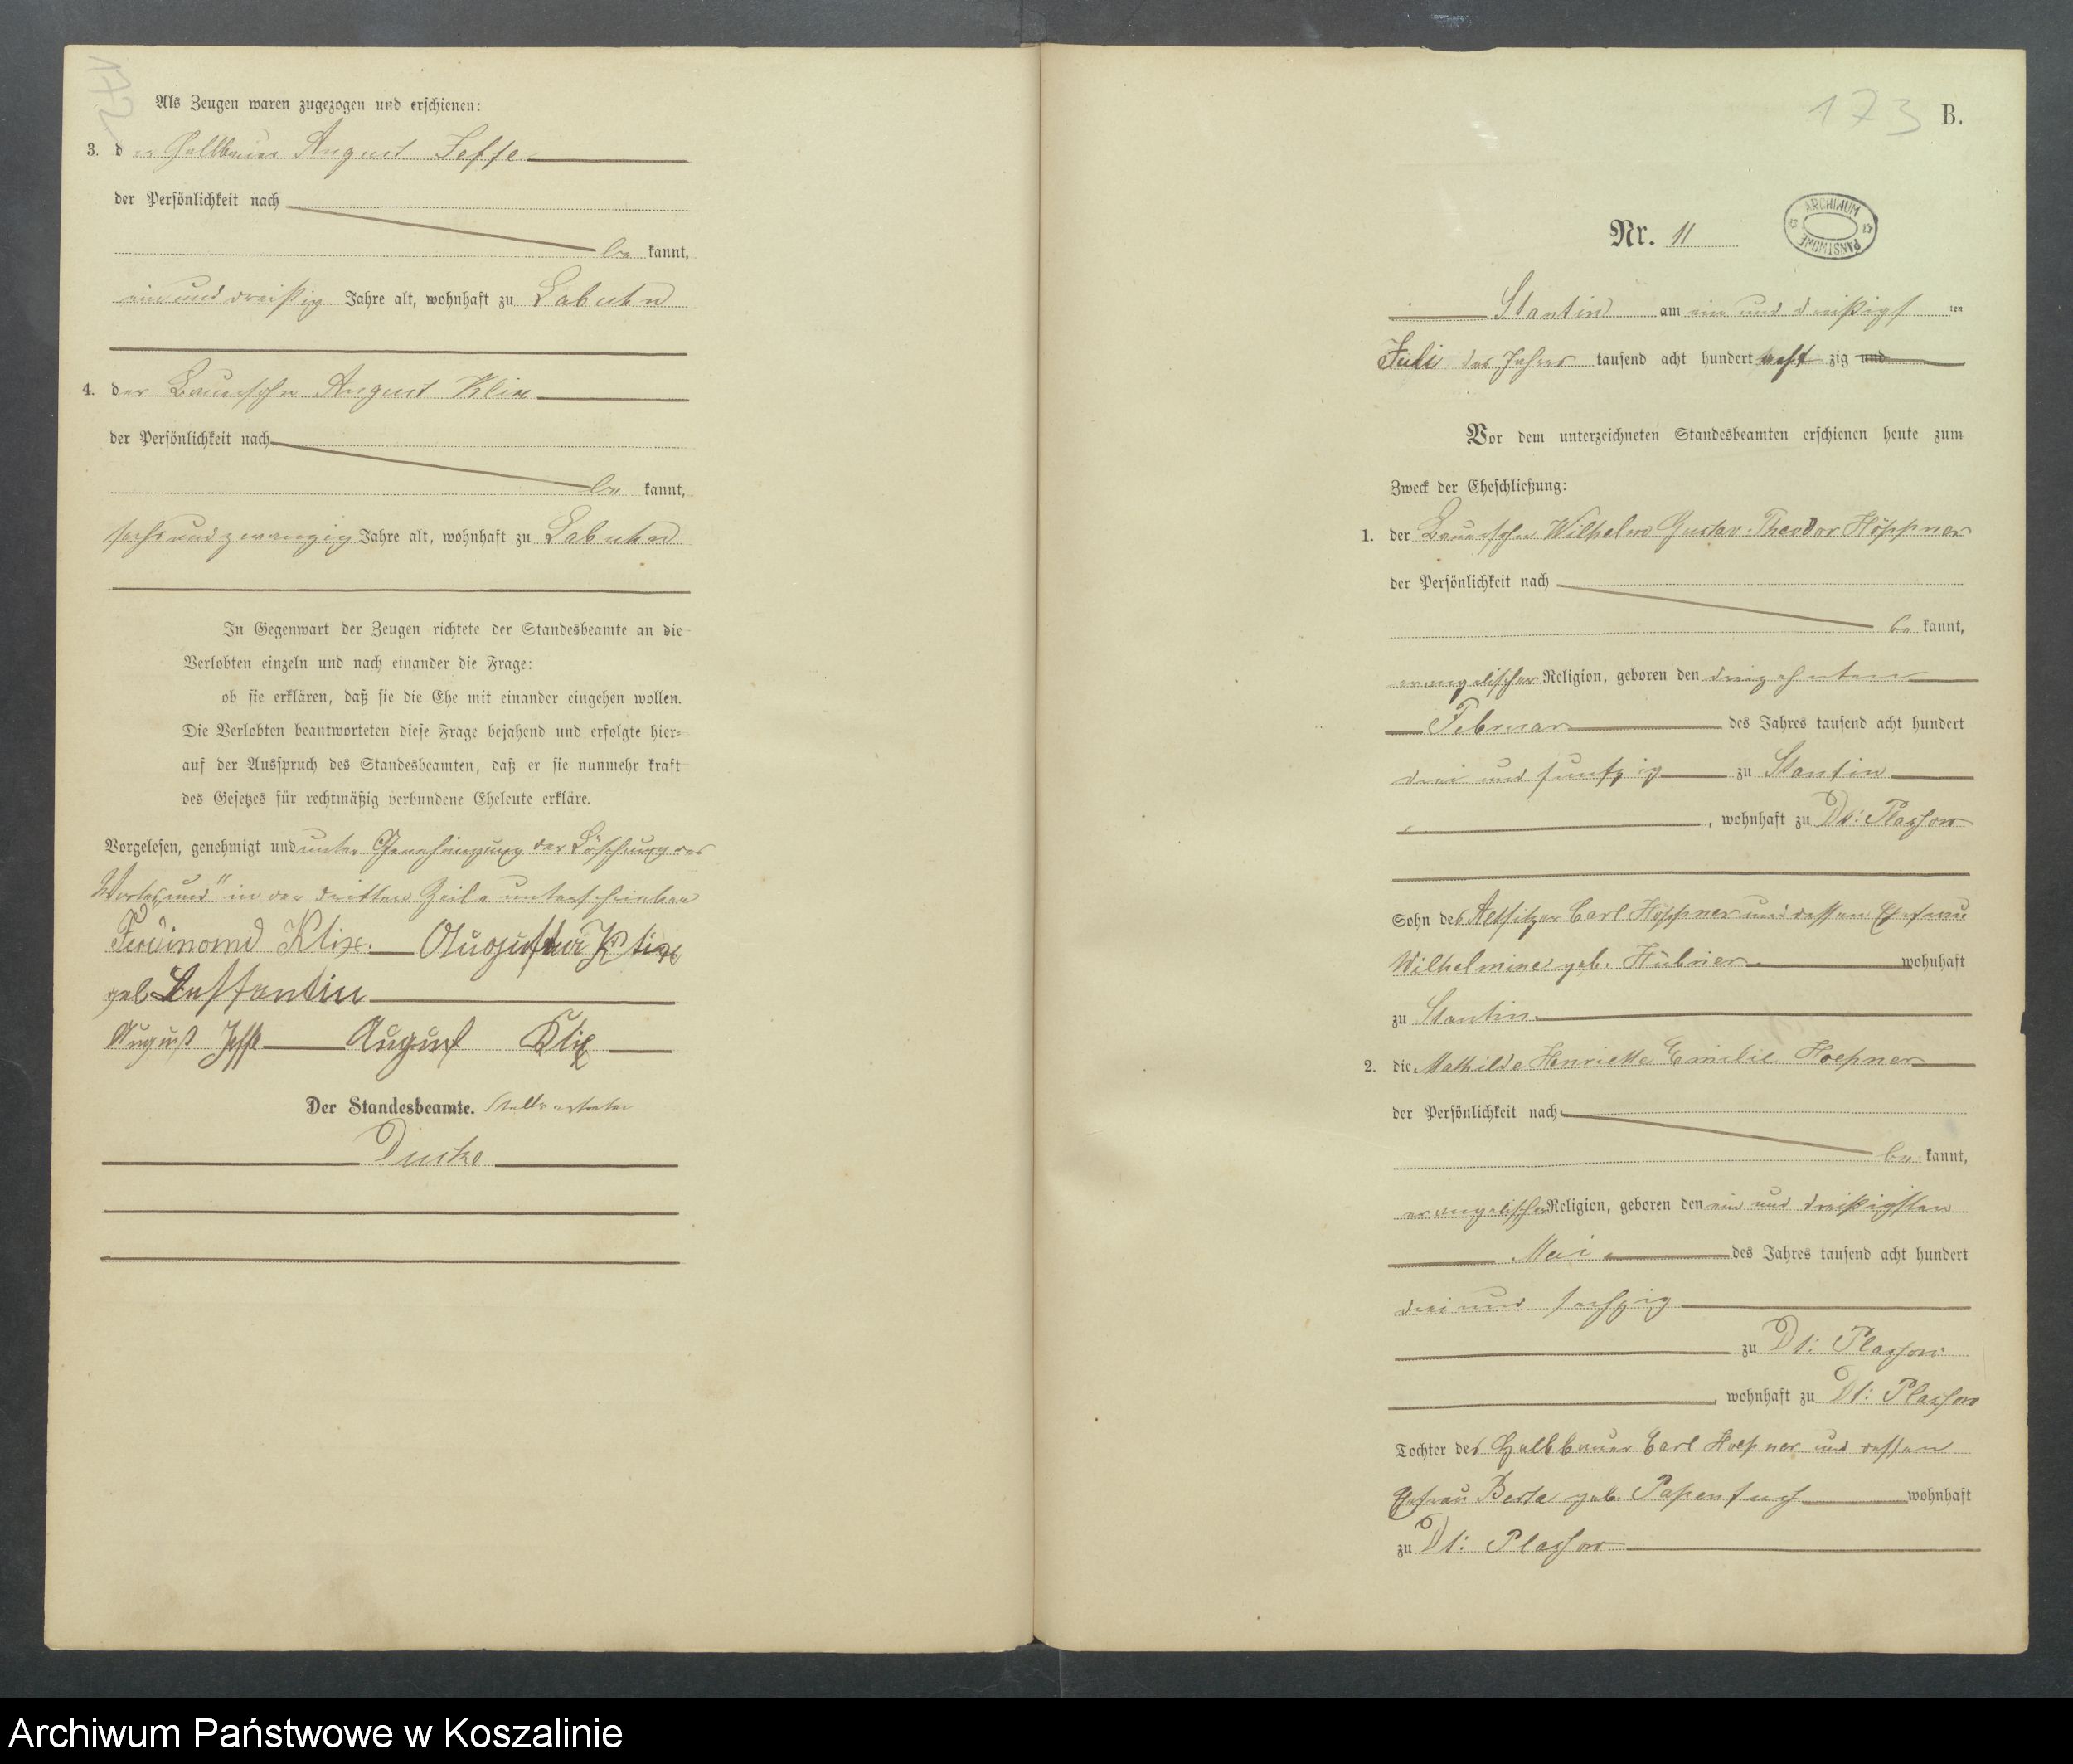 172
Als Zeugen waren zugezogen und erschienen:
3. der Halbbauer August Jeffe
der Persönlichkeit nach
be kannt,
ein und dreißig Jahre alt, wohnhaft zu Labuhn
4. der Bauersohn August Klix
der Persönlichkeit nach
be kannt,
sechs und zwanzig Jahre alt, wohnhaft zu Labuhn
In Gegenwart der Zeugen richtete der Standesbeamte an die
Verlobten einzeln und nach einander die Frage:
ob sie erklären, daß sie die Ehe mit einander eingehen wollen.
Die Verlobten beantworteten diese Frage bejahend und erfolgte hier-
auf der Ausspruch des Standesbeamten, daß er sie nunmehr kraft
des Gesetzes für rechtmäßig verbundene Eheleute erkläre.
Vorgelesen, genehmigt und unter Genehmigung der Löschung des
Wortes „und" in der dritten Zeile unterschrieben
Ferdinand Klix. Auguste Klix
geb.
August Jeffe August Klix
Der Standesbeamte. Stellvertreter
173 B.
Nr. 11
ARCHIWUM PAŃSTWOWE
Stantin am ein und dreißigs ten
Juli des Jahres tausend acht hundert acht zig und
Vor dem unterzeichneten Standesbeamten erschienen heute zum
Zweck der Eheschließung:
1. der Bauersohn Wilhelm Gustav Theodor Höppner
der Persönlichkeit nach
be kannt,
evangelischer Religion, geboren den dreizehnten
Februar des Jahres tausend acht hundert
drei und funfzig zu Stantin
, wohnhaft zu Dt: Plassow
Sohn des Altsitzer Carl Höppner und dessen Ehefrau
Wilhelmine geb. Hübner wohnhaft
zu Stantin.
2. die Mathilde Henriette Emilie Hoepner
der Persönlichkeit nach
be kannt,
evangelischer Religion, geboren den ein und dreißigsten
Mai des Jahres tausend acht hundert
drei und sechzig
zu Dt: Plassow
, wohnhaft zu Dt: Plassow
Tochter des Halbbauer Carl Hoepner und dessen
Ehefrau Berta geb. Papenfuß wohnhaft
zu Dt: Plassow
Archiwum Państwowe w Koszalinie